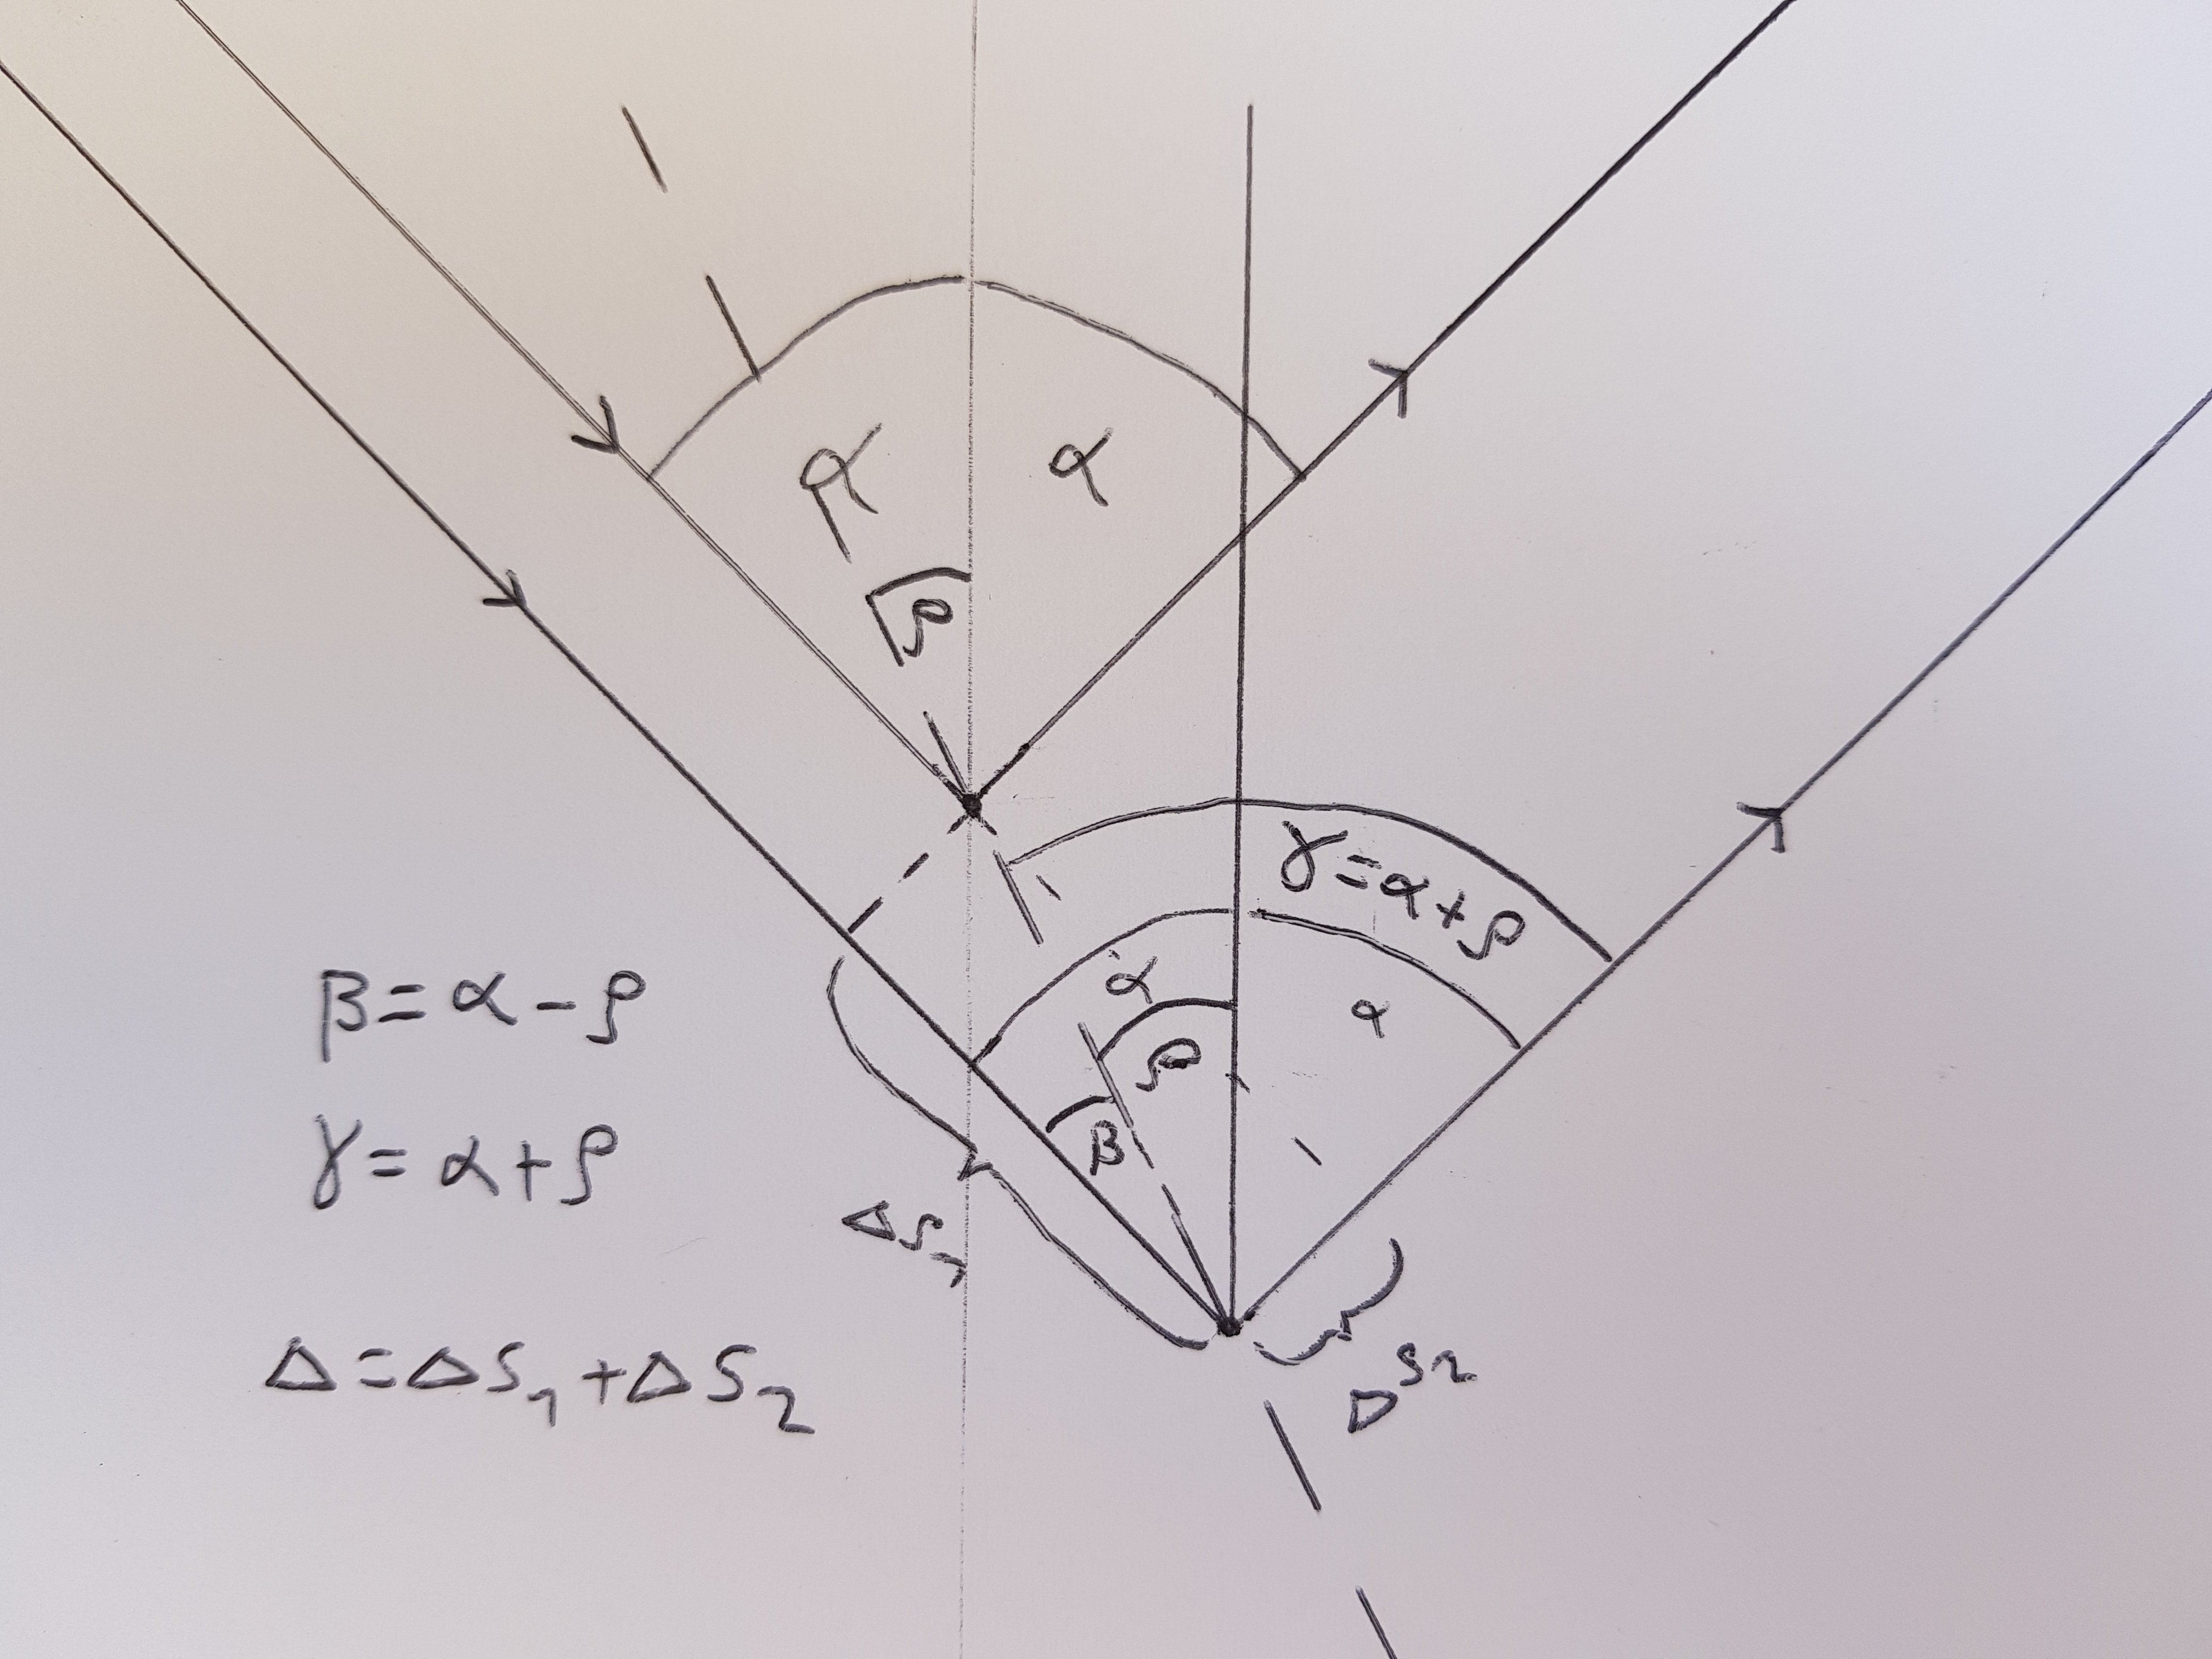 α α
ρ
γ = α + ρ
α α
ρ
β
β = α - ρ
γ = α + ρ
Δs₁
Δs₂
Δ = Δs₁ + Δs₂